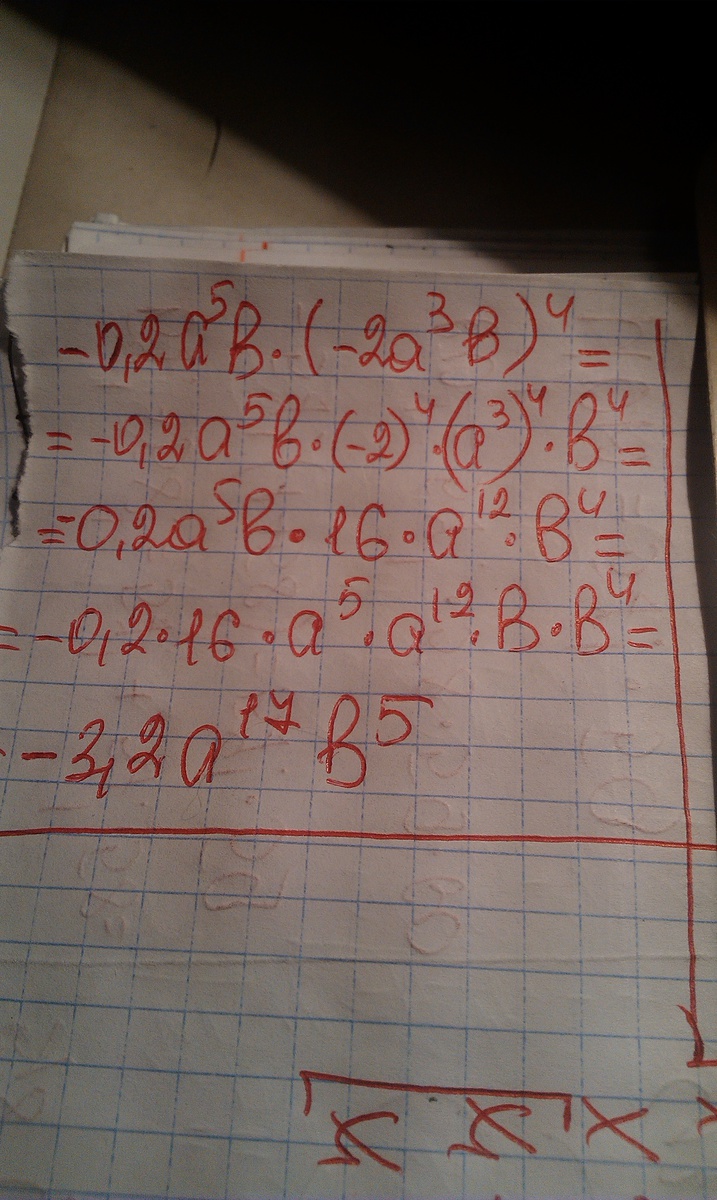 -0,2a⁵b·(-2a³b)⁴=
=-0,2a⁵b·(-2)⁴·(a³)⁴·b⁴=
=-0,2a⁵b·16·a¹²·b⁴=
=-0,2·16·a⁵·a¹²·b·b⁴=
-3,2a¹⁷b⁵